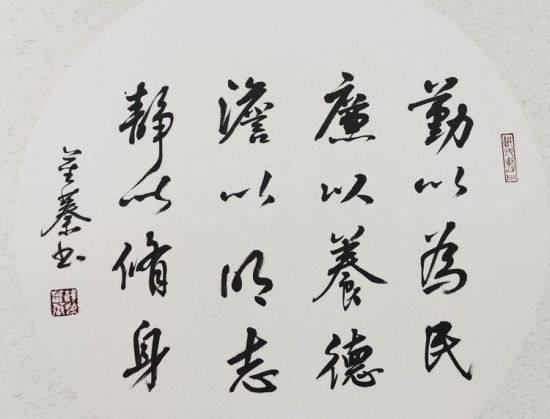 勤以為民
廉以養德
澹以明志
靜以脩身
秦書